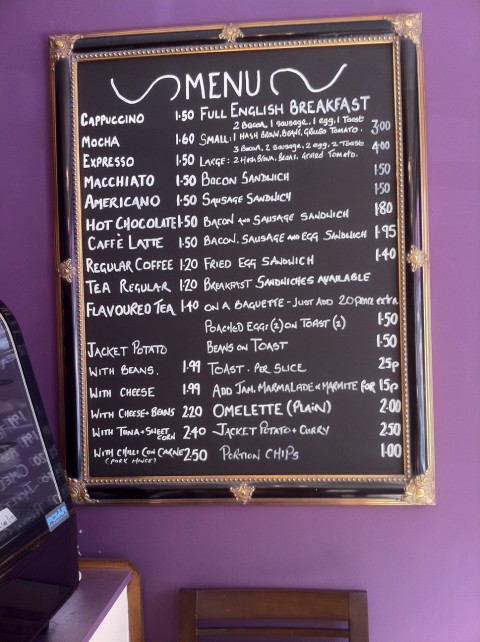 MENU
CAPPUCCINO 1.50
MOCHA 1.60
EXPRESSO 1.50
MACCHIATO 1.50
AMERICANO 1.50
HOT CHOCOLATE 1.50
CAFFÈ LATTE 1.50
REGULAR COFFEE 1.20
TEA REGULAR 1.20
FLAVOURED TEA 1.40
JACKET POTATO
WITH BEANS. 1.99
WITH CHEESE 1.99
WITH CHEESE + BEANS 2.20
WITH TUNA + SWEET CORN 2.40
WITH CHILLI CON CARNE 2.50
(PORK MINCE)
FULL ENGLISH BREAKFAST
2 Bacon, 1 sausage, 1 egg, 1 Toast
SMALL: 1 HASH BROWN, BEANS, GRILLED TOMATO. 3.00
3 Bacon, 2 Sausage, 2 egg, 2 Toast
LARGE: 2 HASH BROWN, BEANS, GRILLED TOMATO. 4.00
BACON SANDWICH 1.50
SAUSAGE SANDWICH 1.50
BACON AND SAUSAGE SANDWICH 1.80
BACON, SAUSAGE AND EGG SANDWICH 1.95
FRIED EGG SANDWICH 1.40
BREAKFAST SANDWICHES AVAILABLE
ON A BAGUETTE - JUST ADD 20 pence extra
POACHED EGGS (2) ON TOAST (2) 1.50
BEANS ON TOAST 1.50
TOAST. PER SLICE 25p
ADD JAM, MARMALADE or MARMITE FOR 15p
OMELETTE (PLAIN) 2.00
JACKET POTATO + CURRY 2.50
PORTION CHIPS 1.00